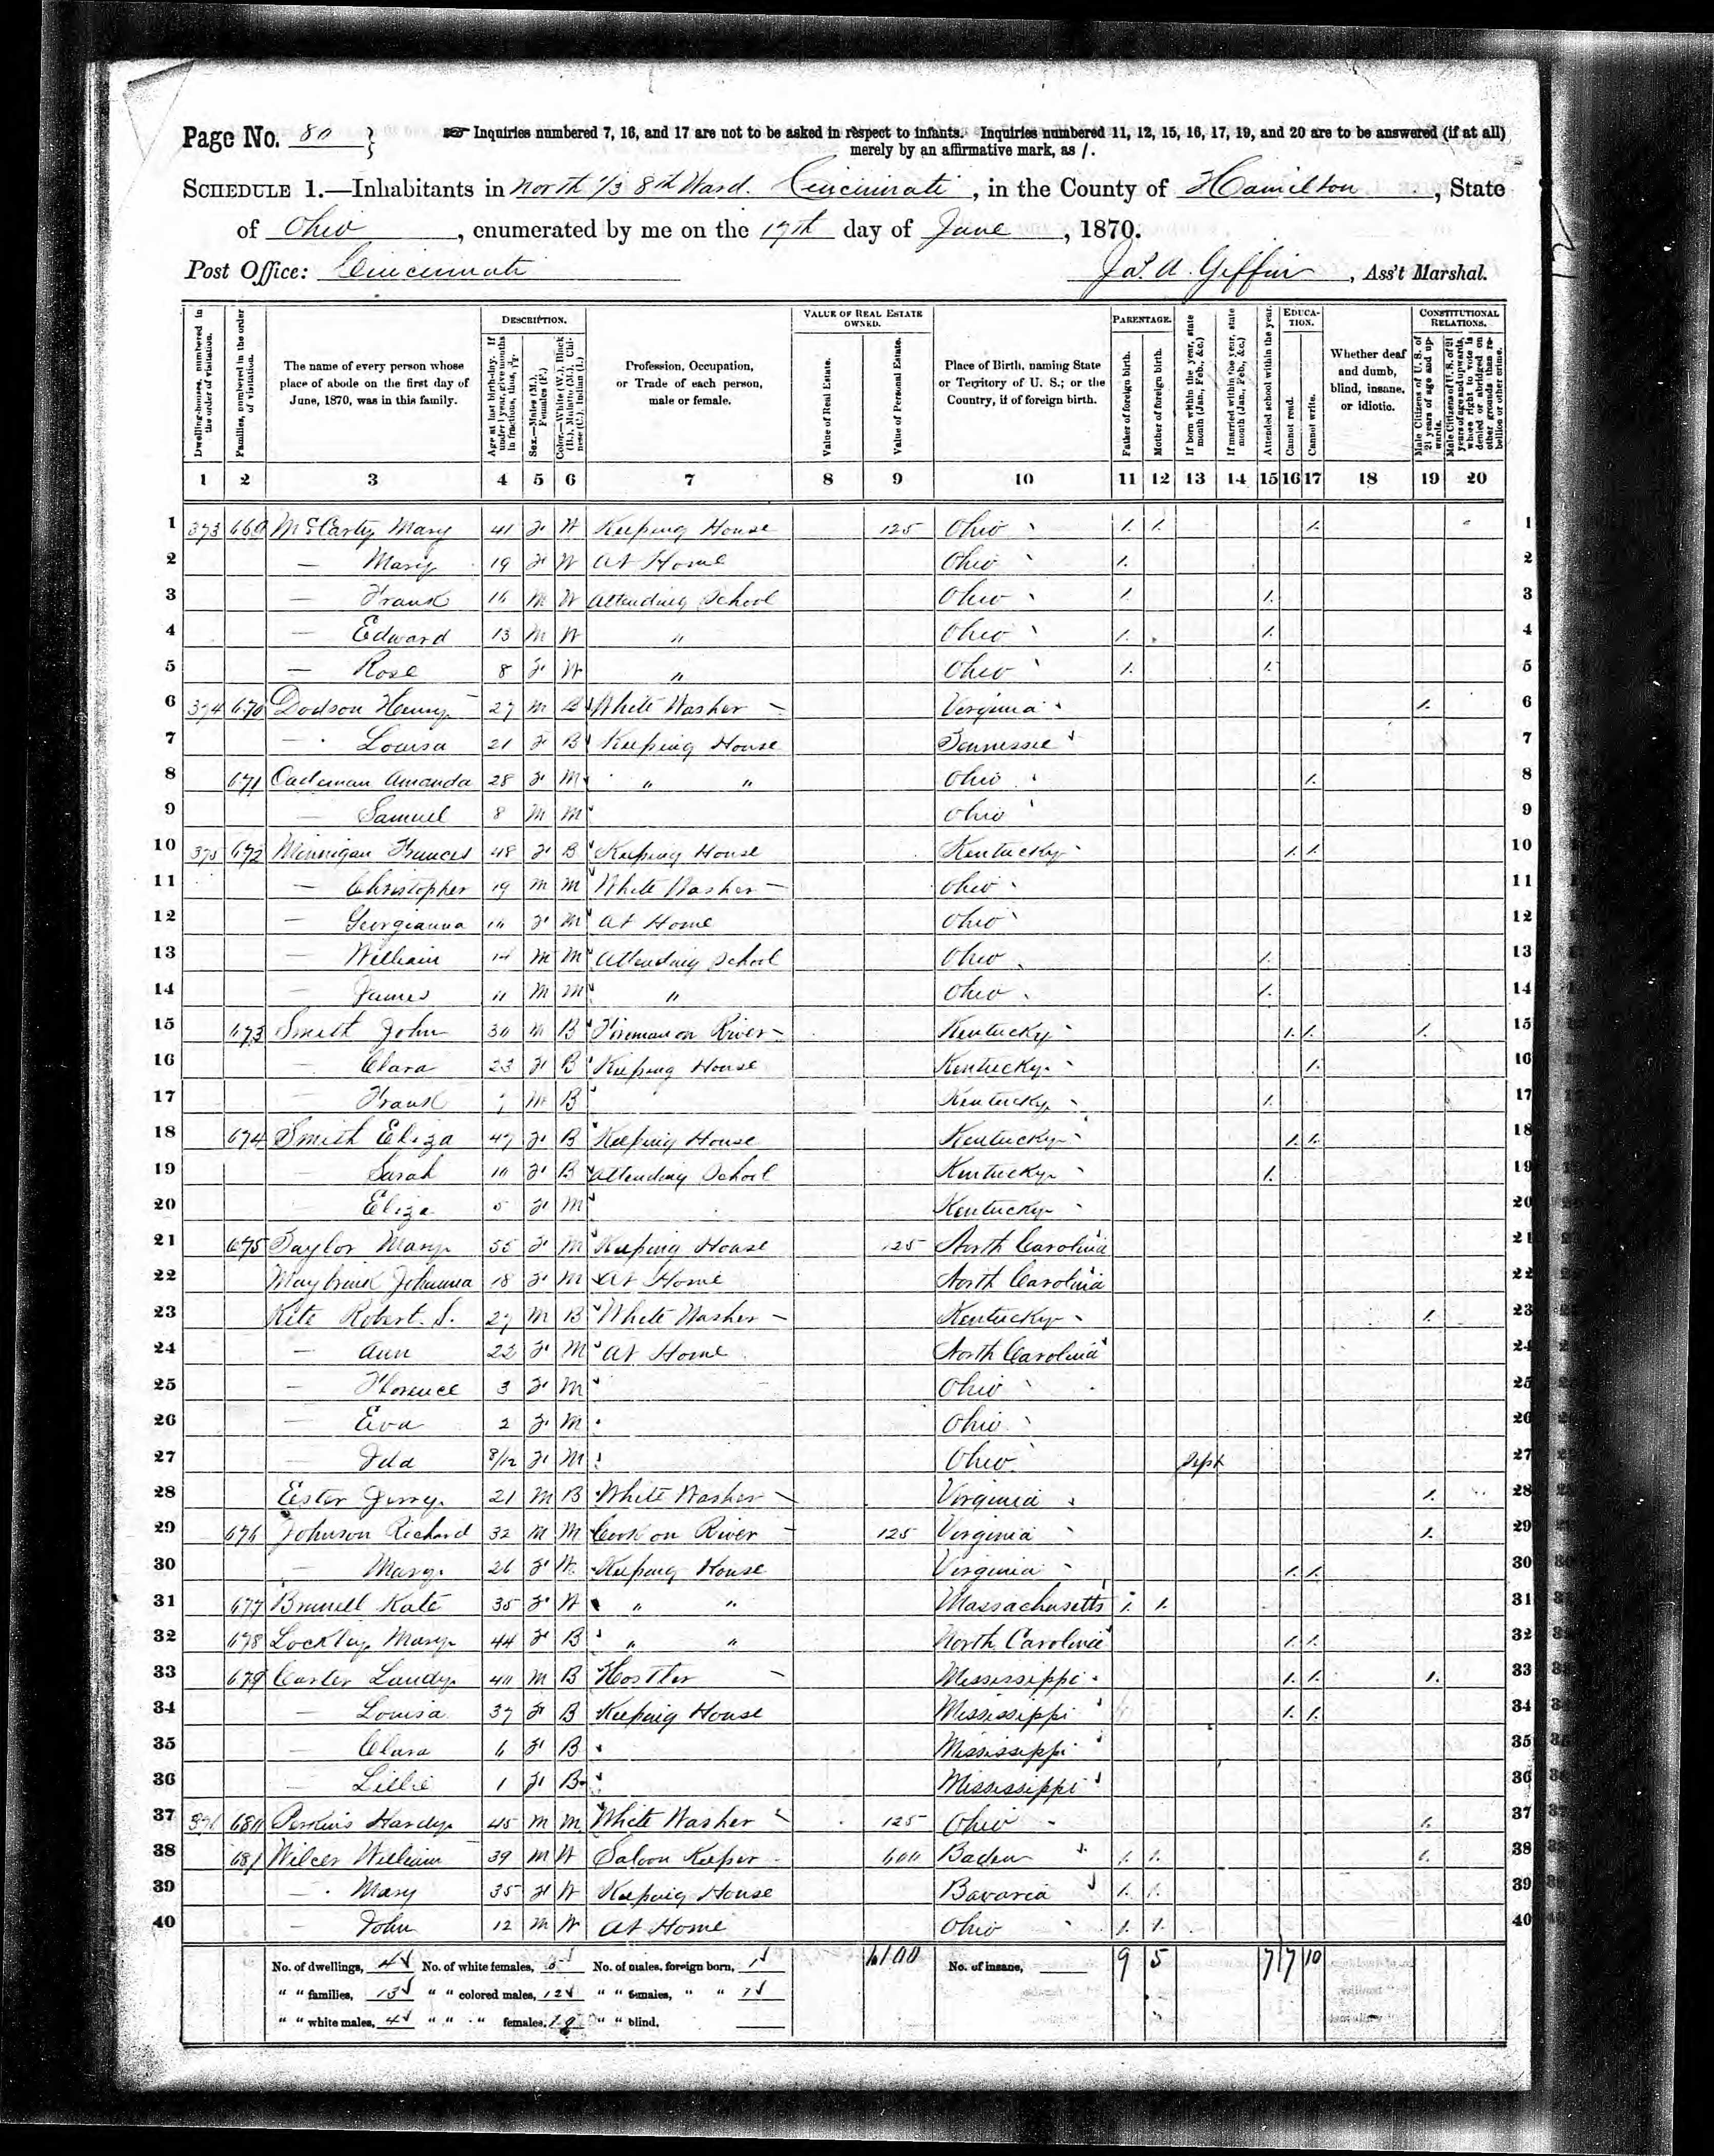 Page No. 80
☞ Inquiries numbered 7, 16, and 17 are not to be asked in respect to infants. Inquiries numbered 11, 12, 15, 16, 17, 19, and 20 are to be answered (if at all)
merely by an affirmative mark, as /.
SCHEDULE 1.—Inhabitants in North 1/3 8th Ward. Cincinnati, in the County of Hamilton, State
of Ohio, enumerated by me on the 17th day of June, 1870.
Post Office: Cincinnati Jas. A. Giffin, Ass't Marshal.
Dwelling-houses, numbered in the order of visitation.
Families, numbered in the order of visitation.
The name of every person whose place of abode on the first day of June, 1870, was in this family.
DESCRIPTION.
Age at last birth-day. If under 1 year, give months in fractions, thus, 3/12.
Sex.—Males (M.), Females (F.)
Color.—White (W.), Black (B.), Mulatto (M.), Chinese (C.), Indian (I.)
Profession, Occupation, or Trade of each person, male or female.
VALUE OF REAL ESTATE OWNED.
Value of Real Estate.
Value of Personal Estate.
Place of Birth, naming State or Territory of U. S.; or the Country, if of foreign birth.
PARENTAGE.
Father of foreign birth.
Mother of foreign birth.
If born within the year, state month (Jan., Feb., &c.)
If married within the year, state month (Jan., Feb., &c.)
Attended school within the year.
EDUCATION.
Cannot read.
Cannot write.
Whether deaf and dumb, blind, insane, or idiotic.
CONSTITUTIONAL RELATIONS.
Male Citizens of U. S. of 21 years of age and upwards.
Male Citizens of U. S. of 21 years of age and upwards, whose right to vote is denied or abridged on other grounds than rebellion or other crime.
1 2 3 4 5 6 7 8 9 10 11 12 13 14 15 16 17 18 19 20
1 373 669 McCarty Mary 41 F W Keeping House 125 Ohio / / / 1
2 — Mary 19 F W At Home Ohio / 2
3 — Frank 16 M W Attending School Ohio / / 3
4 — Edward 13 M W " Ohio / / 4
5 — Rose 8 F W " Ohio / / 5
6 374 670 Dodson Henry 27 M B White Washer Virginia / 6
7 — Louisa 21 F B Keeping House Tennessee 7
8 671 Amanda 28 F M " " Ohio / 8
9 — Samuel 8 M M Ohio 9
10 375 672 Minnigan Frances 48 F B Keeping House Kentucky / / 10
11 — Christopher 19 M M White Washer Ohio 11
12 — Georgianna 16 F M At Home Ohio 12
13 — William 14 M M Attending School Ohio / 13
14 — James 11 M M " Ohio / 14
15 673 Smith John 30 M B Fireman on River Kentucky / / / 15
16 — Clara 23 F B Keeping House Kentucky / 16
17 — Frank 7 M B Kentucky / 17
18 674 Smith Eliza 47 F B Keeping House Kentucky / / 18
19 — Sarah 10 F B Attending School Kentucky / 19
20 Eliza 5 F M Kentucky 20
21 675 Taylor Mary 55 F M Keeping House 125 North Carolina 21
22 Johanna 18 F M At Home North Carolina 22
23 Kite Robert. S. 27 M B White Washer Kentucky / 23
24 — Ann 22 F M At Home North Carolina 24
25 — Florence 3 F M Ohio 25
26 — Eva 2 F M Ohio 26
27 — Ida 8/12 F M Ohio Sept 27
28 Ester Jerry 21 M B White Washer Virginia / 28
29 676 Johnson Richard 32 M M Cook on River 125 Virginia / 29
30 — Mary 26 F W Keeping House Virginia / / 30
31 677 Kate 35 F W " " Massachusetts / / 31
32 678 Lockley Mary 44 F B " " North Carolina / / 32
33 679 Carter Landy 40 M B Hostler Mississippi / / / 33
34 — Louisa 37 F B Keeping House Mississippi / / 34
35 — Clara 6 F B Mississippi 35
36 — Lillie 1 F B Mississippi 36
37 376 680 Perkins Hardy 45 M M White Washer 125 Ohio / 37
38 681 William 39 M W Saloon Keeper 600 Baden / / / 38
39 — Mary 35 F W Keeping House Bavaria / / 39
40 — John 12 M W At Home Ohio / / 40
No. of dwellings, 4 No. of white females, No. of males, foreign born, 1 1100 No. of insane, 9 5 7 7 10
" " families, 13 " " colored males, 12 " " females, " " 1
" " white males, 4 " " " females, 19 " " blind,